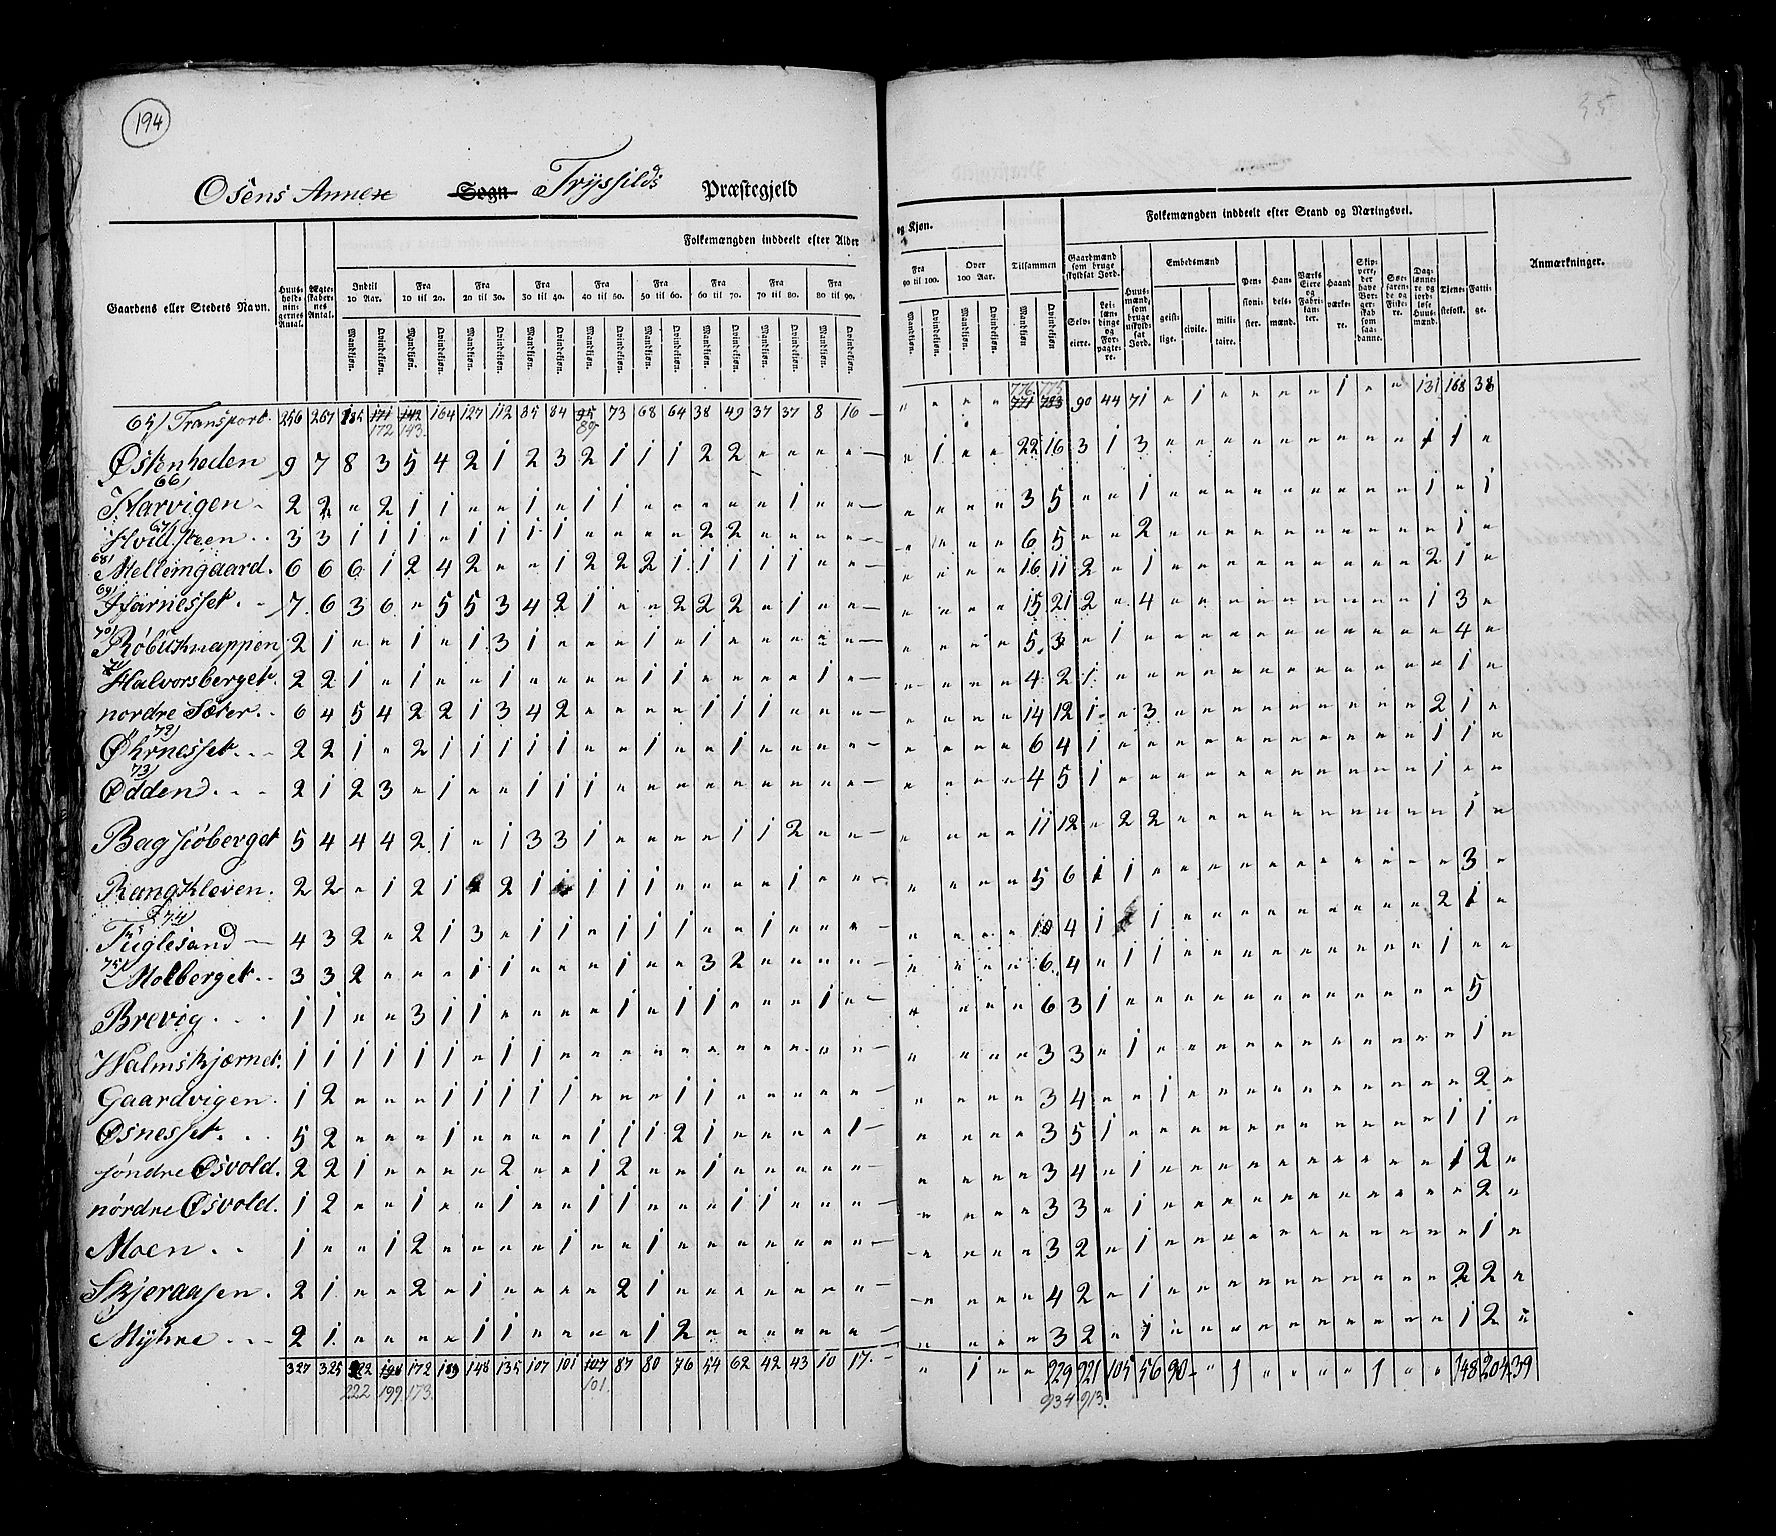 194
55
Osens Annex Sogn Trysilds Præstegjeld
Folkemængden inddeelt efter Alder
og Kjøn.
Folkemængden inddeelt efter Stand og Næringsvei.
Gaardens eller Stedets Navn.
Huus-holdningernes Antal.
Ægteskabernes Antal.
Indtil 10 Aar.
Fra 10 til 20.
Fra 20 til 30.
Fra 30 til 40.
Fra 40 til 50.
Fra 50 til 60.
Fra 60 til 70.
Fra 70 til 80.
Fra 80 til 90.
Fra 90 til 100.
Over 100 Aar.
Tilsammen
Gaardmænd som bruge skyldsat Jord.
Embedsmænd
Anmærkninger.
Mandkjøn. Qvindekjøn. Mandkjøn. Qvindekjøn. Mandkjøn. Qvindekjøn. Mandkjøn. Qvindekjøn. Mandkjøn. Qvindekjøn. Mandkjøn. Qvindekjøn. Mandkjøn. Qvindekjøn. Mandkjøn. Qvindekjøn. Mandkjøn. Qvindekjøn.
Mandkjøn. Qvindekjøn. Mandkjøn. Qvindekjøn. Mandkjøn Qvindekjøn.
Selveiere.
Leilændinge og Forpagtere.
Huusmænd, som bruge uskyldsat Jord.
geistlige.
civile.
militaire.
Pensionister.
Handelsmænd.
Værks Eiere og Fabrikanter.
Haandværkere.
Skippere, der have Borgerskab som saadanne.
Søefarende og Fiskere.
Daglønnere og jordløse Huusmænd.
Tjenestefolk.
Fattige.
776 775
65) Transport. 256 267 185 171 142 164 127 112 85 84 95 73 68 64 38 49 37 37 8 16 — " " " " 771 783 90 44 71 " 1 " " " " 1 " " 131 168 38
172 143. 89
Øskenheden 9 7 8 3 5 4 2 1 2 3 2 1 1 1 2 2 " " " " — " 1 " " 22 16 3 1 3 " " " " " " " " " 1 1 "
66)
Harvigen 2 2 " 2 1 1 " " 1 " 1 1 " " " " " 1 " " — " " " " 3 5 " " 1 " " " " " " " " " 1 " 1
67)
Hvitsteen 3 3 1 1 1 " 1 1 1 1 " " " " 2 2 " " " " — " " " " 6 5 " " 2 " " " " " " " " " " 1 "
68) Mellemgaard. 6 6 6 1 2 4 2 " " 1 2 2 2 1 1 1 1 1 " " — " " " " 16 11 2 " 1 " " " " " " " " " 2 1 "
69)
Harnesset. 7 6 3 6 " 5 5 3 4 2 1 " " 2 2 2 " 1 " " — " " " " 15 21 2 " 4 " " " " " " " " " 1 3 "
70) Röbuknappen 2 1 " " 1 " 1 3 1 " " " 1 " 1 " " " " " — " " " " 5 3 " 1 " " " " " " " " " " " 4 "
71)
Halvorsberget. 2 2 1 " 1 " " 1 " " " " 1 1 " " " " 1 " — " " " " 4 2 1 " " " " " " " " " " " " 1 "
nordre Sæter. 6 4 5 4 2 2 1 3 4 2 " " " " 1 1 1 " " " — " " " " 14 12 1 " 3 " " " " " " " " " 2 1 "
72)
Øhrnesset. 2 2 1 " 2 1 1 1 1 1 " " 1 " " 1 " " " " — " " " " 6 4 1 " " " " " " " " " " " 1 1 "
73)
Odden 2 1 2 3 " 1 " " 1 1 1 " " " " " " " " " — " " " " 4 5 1 " " " " " " " " " " " 1 " "
Bagsjöberget 5 4 4 4 2 1 " 1 3 3 1 " " " " 1 1 2 " " — " " " " 11 12 " 2 2 " " " " " " " " " " 1 "
Rangkleven. 2 2 " 1 2 1 " 2 1 " 1 1 1 " " " " 1 " " — " " " " 5 6 1 1 " " " " " " " " " " " 3 "
74)
Fuglesand — 4 3 2 " 2 1 3 " 1 1 " 1 1 1 " " 1 " " " — " " " " 10 4 1 1 " " " " " " " " " 2 1 "
75) Molberget 3 3 2 " " " 1 1 " " " 1 " " 3 2 " " " " — " " " " 6 4 " 1 1 " " " " " " " " " 1 " "
Brevig 1 1 " " 3 1 1 " " " " 1 " 1 1 " " " 1 " — " " " " 6 3 1 " " " " " " " " " " " " 5
Walmskjærnet. 1 1 1 1 1 1 " 1 1 " " " " " " " " " " " — " " " " 3 3 " 1 " " " " " " " " " " " 1 "
Gaardvigen 1 2 " " " 1 1 1 1 1 " " " 1 1 " " " " " — " " " " 3 4 " " 1 " " " " " " " " " " 2 "
Osnesset. 5 2 " " " 1 " " " " 1 1 1 2 1 " " " " 1 — " " " " 3 5 1 " " " " " " " " " " " 1 1 "
söndre Osvold. 2 2 1 " " " " 2 " " 1 2 " " 1 " " " " " — " " " " 3 4 " 1 " " " " " " " " " " 1 2 "
nordre Osvold. 1 2 " " 1 " " 1 " " 1 1 " " " 1 1 " " " — " " " " 3 3 " 1 " " " " " " " " " " " 2 "
Moen 1 " " 1 2 " " " " 1 " " 1 " " " " " " " — " " " " 3 2 " 1 " " " " " " " " " " " 1 "
Skjeraasen. 2 1 " " 2 " 1 " " " " 2 1 " " " " " " " — " " " " 4 2 " 1 " " " " " " " " " " 2 2 "
Myhre 2 1 " " " " 1 1 " " " " 1 2 " " " " " " — " " " " 3 2 " 1 " " " " " " " " " " 1 2 "
327 325 222 198 172 189 148 135 107 101 107 87 80 76 54 62 42 43 10 17. — " 1 " " 929 921 105 56 90 " " 1 " " " " 1 " " 148 204 39
222 199 173. 101. 934 913.